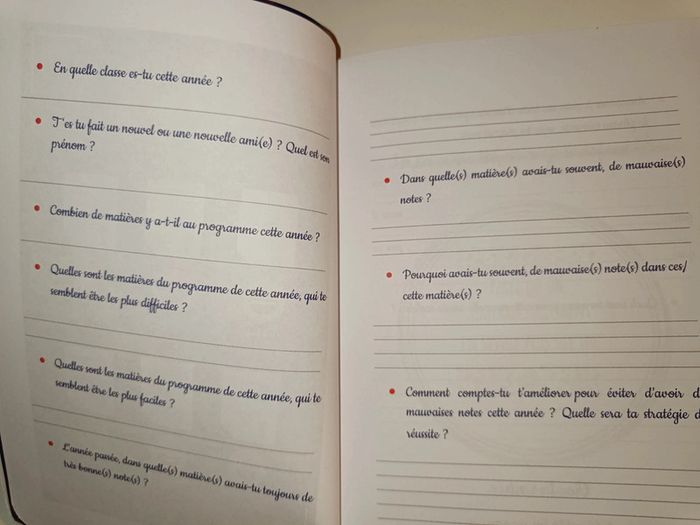 • En quelle classe es-tu cette année ?
• T'es tu fait un nouvel ou une nouvelle ami(e) ? Quel est son
prénom ?
• Combien de matières y a-t-il au programme cette année ?
• Quelles sont les matières du programme de cette année, qui te
semblent être les plus difficiles ?
• Quelles sont les matières du programme de cette année, qui te
semblent être les plus faciles ?
• L'année passée, dans quelle(s) matière(s) avais-tu toujours de
très bonne(s) note(s) ?
• Dans quelle(s) matière(s) avais-tu souvent, de mauvaise(s)
notes ?
• Pourquoi avais-tu souvent, de mauvaise(s) note(s) dans ces/
cette matière(s) ?
• Comment comptes-tu t'améliorer pour éviter d'avoir d
mauvaises notes cette année ? Quelle sera ta stratégie d
réussite ?